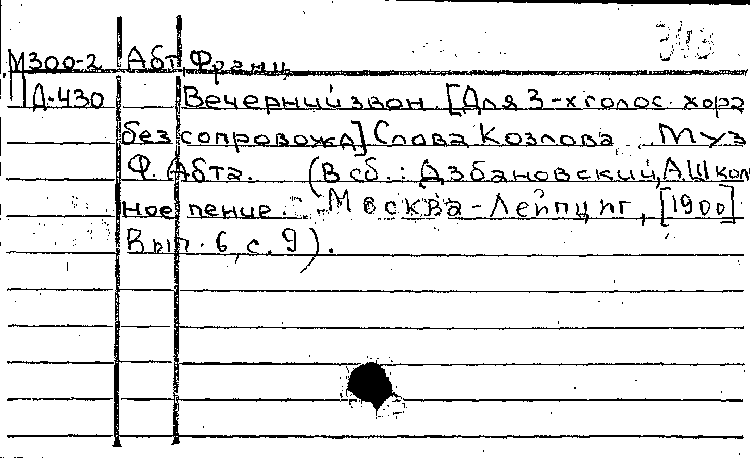 343
М300-2 Абт, Франц
Д-430 Вечерний звон. [Для 3-хголос. хора
без сопровожд] Слова Козлова. Муз
Ф. Абта. (В сб.: Дзбановский, А Школ
ное пение. Москва-Лейпциг, [1900].
Вып. 6, с. 9).